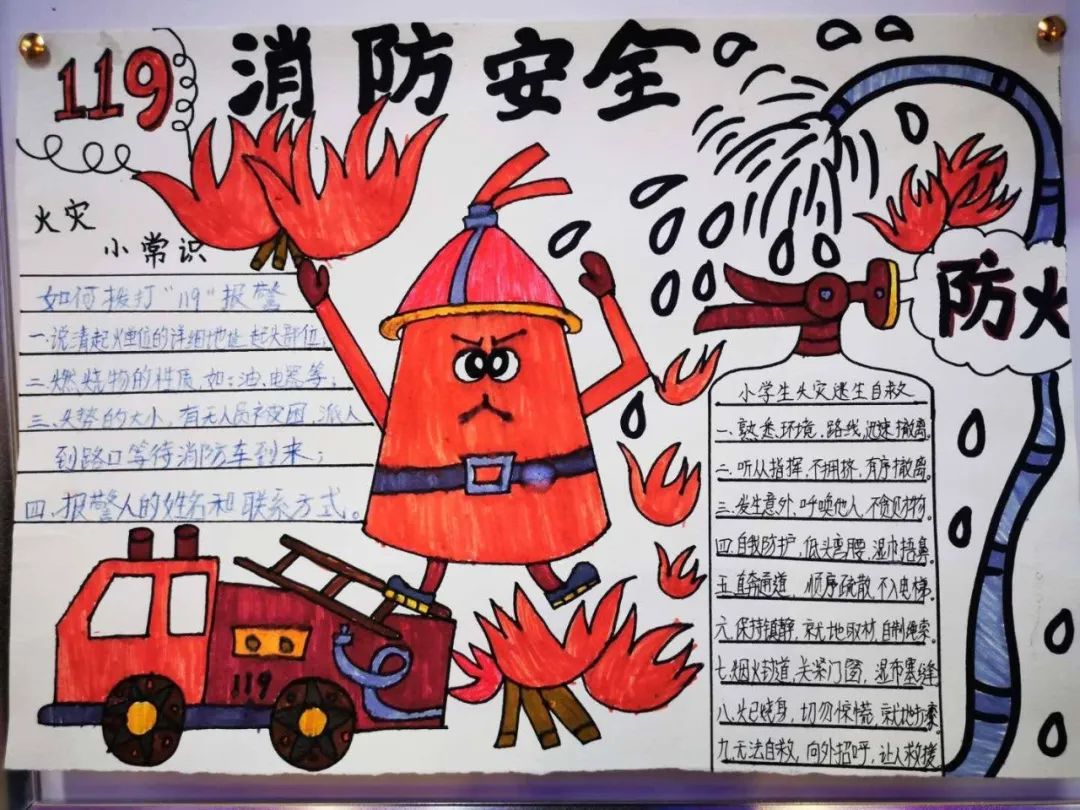 119
消防安全
火灾
小常识
如何拨打“119”报警
一.说清起火单位的详细地址,起火部位;
二.燃烧物的性质,如:油、电器等;
三.火势的大小,有无人员被困,派人
到路口等待消防车到来;
四.报警人的姓名和联系方式。
119
防火
小学生火灾逃生自救
一.熟悉环境,路线,迅速撤离。
二.听从指挥,不拥挤,有序撤离。
三.发生意外,呼唤他人,不贪见财物。
四.自我防护,低头弯腰,湿巾捂鼻。
五.直奔通道,顺序疏散,不入电梯。
六.保持镇静,就地取材,自制绳索。
七.烟火封道,关紧门窗,湿布塞缝
八.火已烧身,切勿惊慌,就地打
九.无法自救,向外招呼,让人救援。